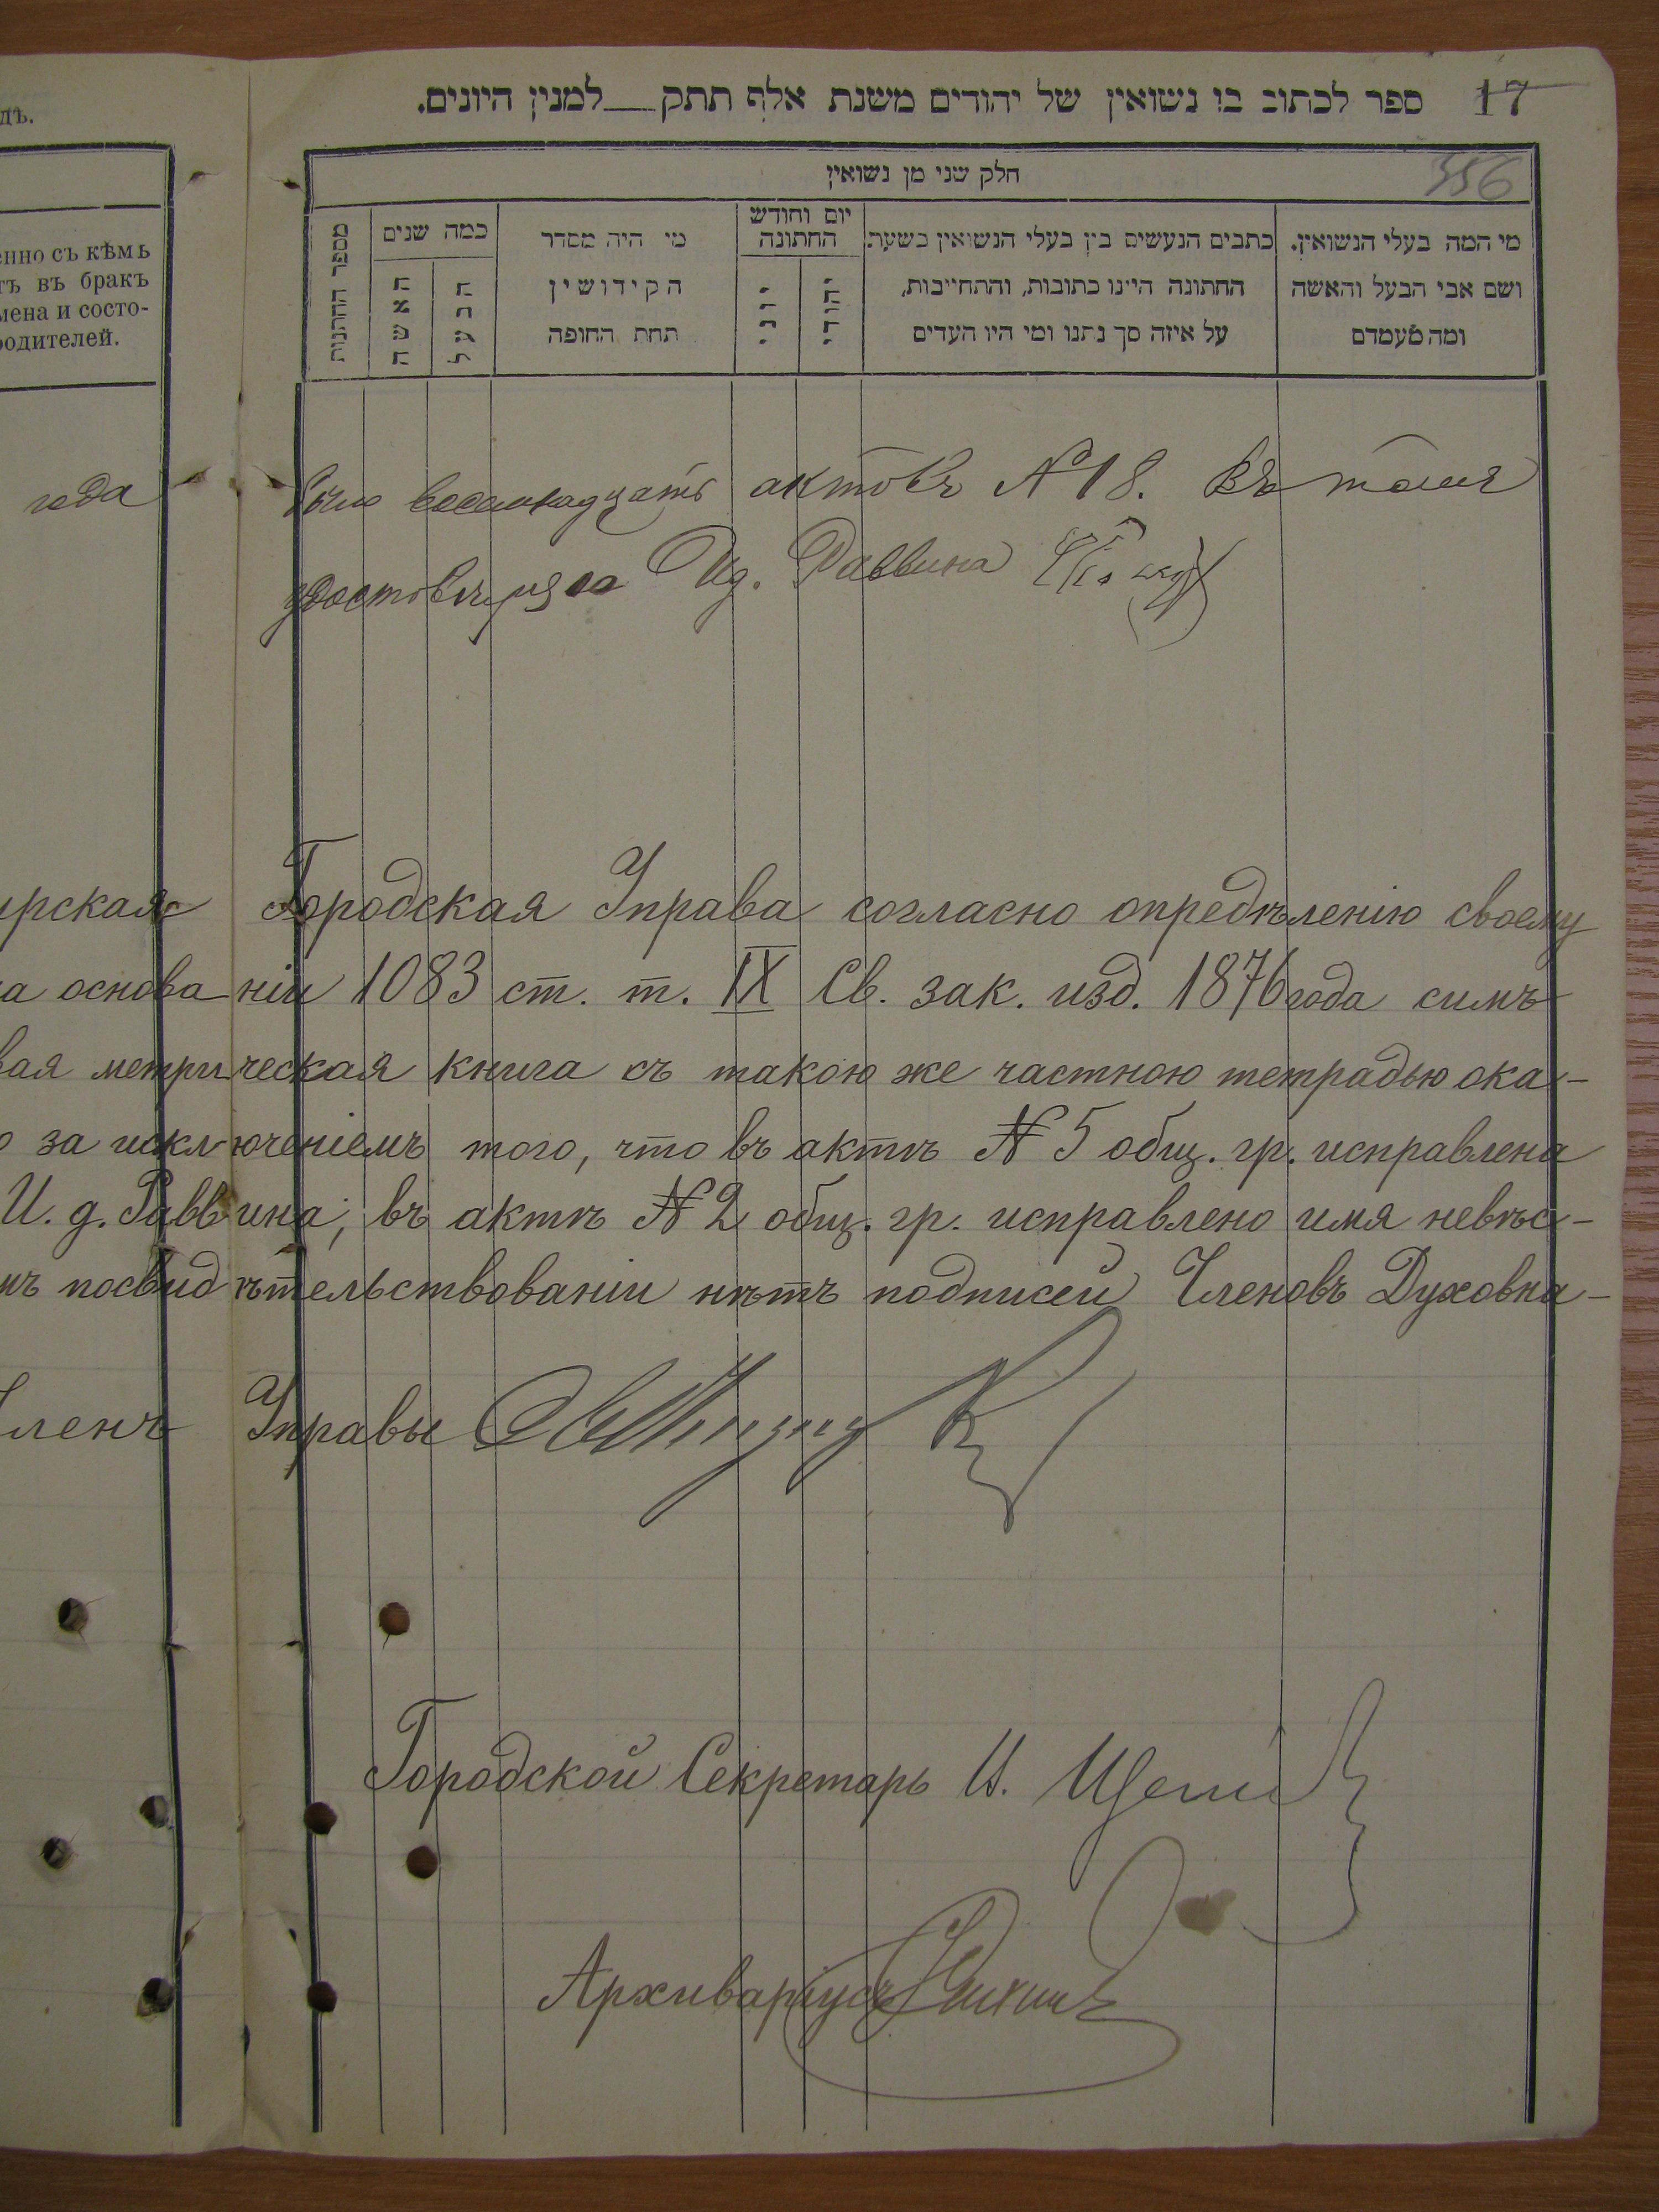 дъ.
17 ספר לכתוב בו נשואין של יהודים משנת אלף תתק למנין היונים.
356
חלק שני מן נשואין
מספר החתונות
כמה שנים
האשה
הבעל
מי היה מסדר
הקידושין
תחת החופה
יום וחודש
החתונה
יוני
יהודי
כתבים הנעשים בין בעלי הנשואין בשעת
החתונה היינו כתובות, והתחייבות,
על איזה סך נתנו ומי היו העדים
מי המה בעלי הנשואין.
ושם אבי הבעל והאשה
ומה מעמדם
енно съ кѣмъ
тъ въ бракъ
мена и состо-
родителей.
года было восемнадцать актовъ №18. Въ томъ
удостовѣряю Ид. Раввина
ирская Городская Управа согласно опредѣленію своему
а основаніи 1083 ст. т. IX Св. зак. изд. 1876 года симъ
вая метрическая книга съ такою же частною тетрадью ока-
о за исключеніемъ того, что въ актѣ № 5 общ. гр. исправлена
И. д. Раввина, въ актѣ № 2 общ. гр. исправлено имя невѣс-
мъ посвидѣтельствованіи нѣтъ подписей Членовъ Духовна-
Членъ Управы
Городской Секретарь И.
Архиваріусъ